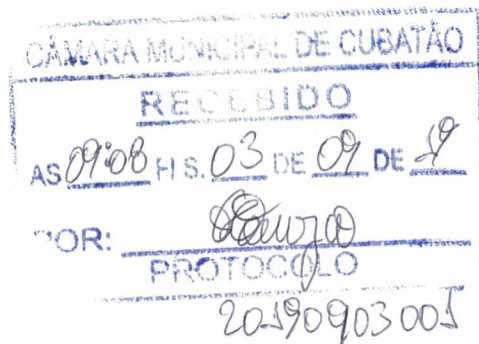 CÂMARA MUNICIPAL DE CUBATÃO
RECEBIDO
AS 09:08 H S. 03 DE 09 DE 19
POR:
PROTOCOLO
20190903001